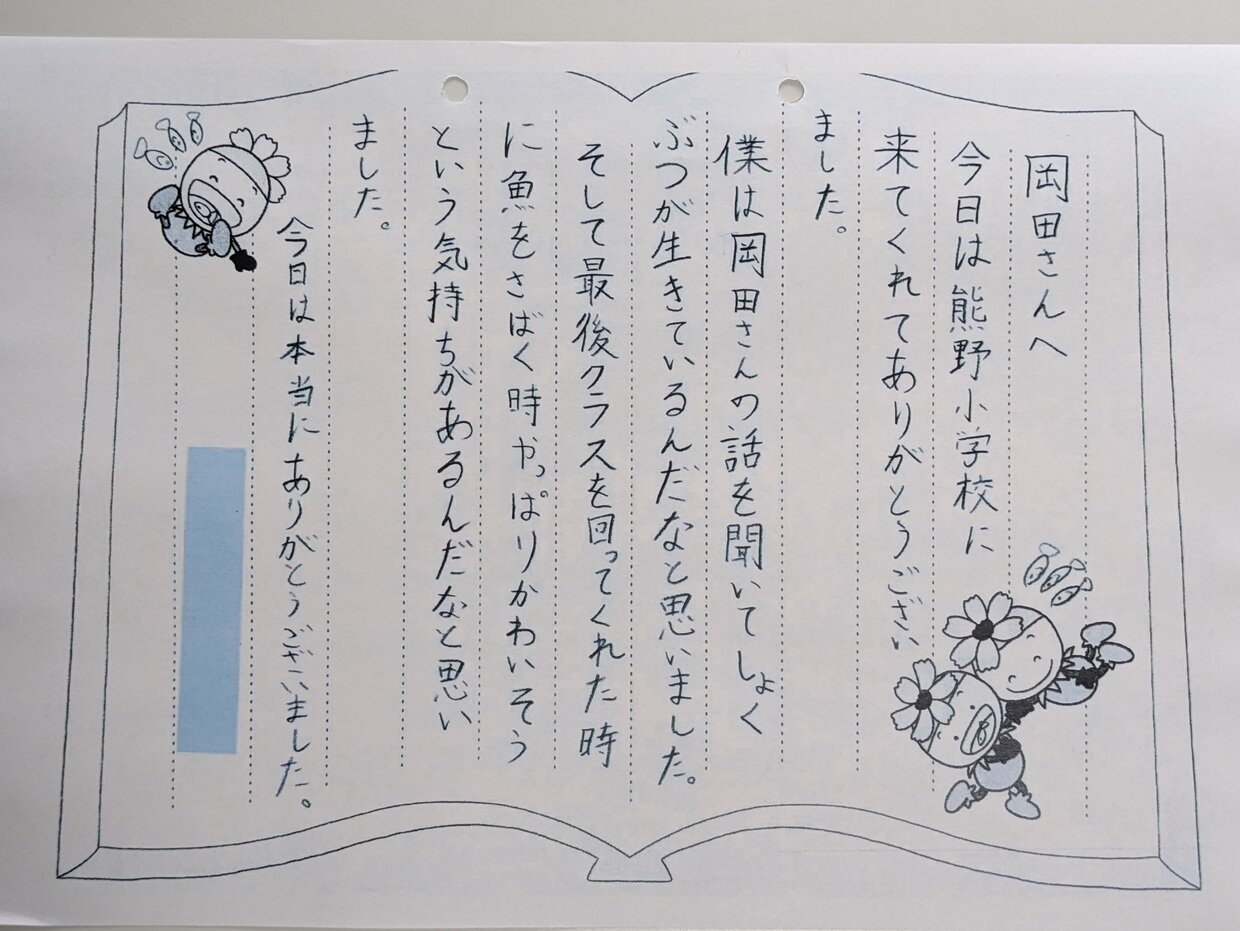 岡田さんへ
今日は熊野小学校に
来てくれてありがとうござい
ました。
僕は岡田さんの話を聞いてしょく
ぶつが生きているんだなと思いました。
そして最後クラスを回ってくれた時
に魚をさばく時やっぱりかわいそう
という気持ちがあるんだなと思い
ました。
今日は本当にありがとうございました。